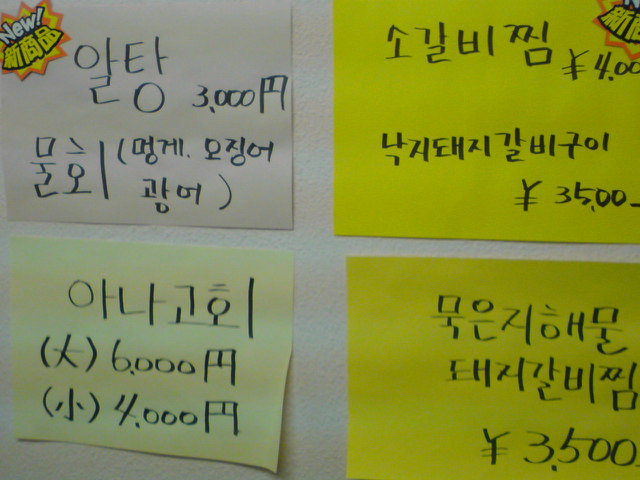 New!
新商品
알탕
3,000円
물회 (멍게. 오징어
광어)
소갈비찜
¥4,00
낙지돼지갈비구이
¥3500-
아나고회
(大) 6,000円
(小) 4,000円
묵은지해물
돼지갈비찜
¥3,500-